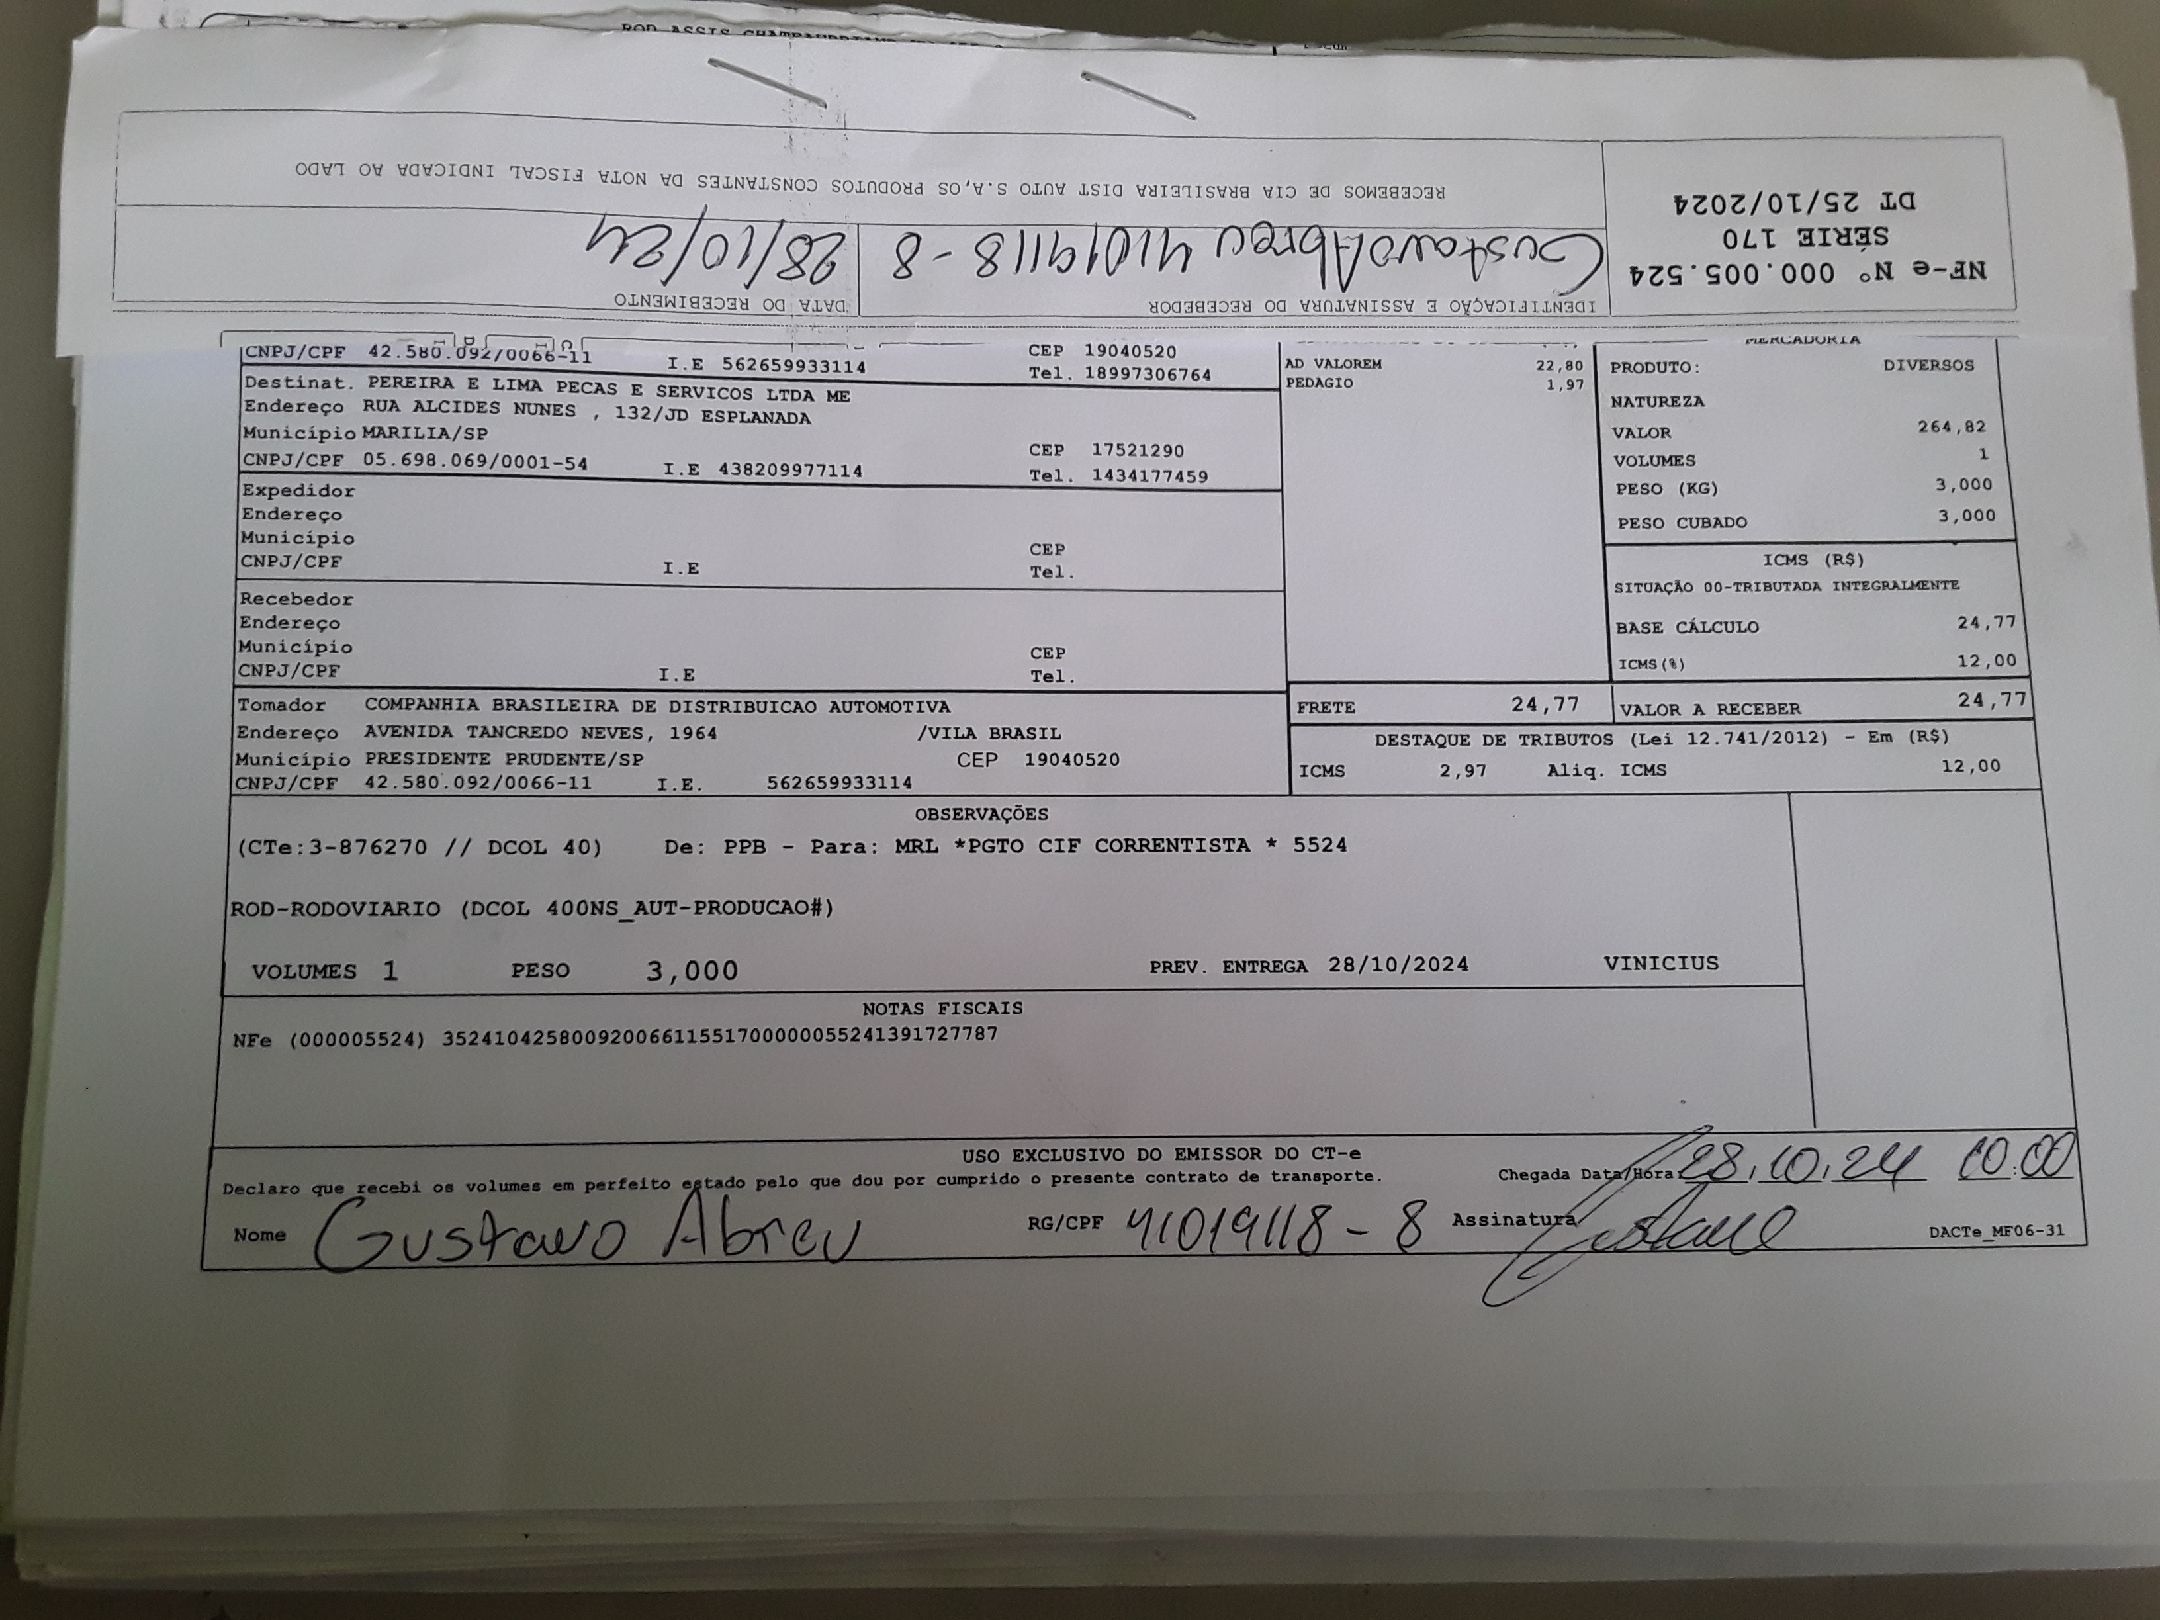 RECEBEMOS DE CIA BRASILEIRA DIST AUTO S.A,OS PRODUTOS CONSTANTES DA NOTA FISCAL INDICADA AO LADO
NF-e Nº 000.005.524
SÉRIE 170
DT 25/10/2024
DATA DO RECEBIMENTO
28/10/24
IDENTIFICAÇÃO E ASSINATURA DO RECEBEDOR
Gustavo Abreu 41019118-8
CNPJ/CPF 42.580.092/0066-11 I.E 562659933114 CEP 19040520
Tel. 18997306764
Destinat. PEREIRA E LIMA PECAS E SERVICOS LTDA ME
Endereço RUA ALCIDES NUNES , 132/JD ESPLANADA
Município MARILIA/SP CEP 17521290
CNPJ/CPF 05.698.069/0001-54 I.E 438209977114 Tel. 1434177459
Expedidor
Endereço
Município CEP
CNPJ/CPF I.E Tel.
Recebedor
Endereço
Município CEP
CNPJ/CPF I.E Tel.
Tomador COMPANHIA BRASILEIRA DE DISTRIBUICAO AUTOMOTIVA
Endereço AVENIDA TANCREDO NEVES, 1964 /VILA BRASIL
Município PRESIDENTE PRUDENTE/SP CEP 19040520
CNPJ/CPF 42.580.092/0066-11 I.E. 562659933114
AD VALOREM 22,80
PEDAGIO 1,97
MERCADORIA
PRODUTO: DIVERSOS
NATUREZA
VALOR 264,82
VOLUMES 1
PESO (KG) 3,000
PESO CUBADO 3,000
ICMS (R$)
SITUAÇÃO 00-TRIBUTADA INTEGRALMENTE
BASE CÁLCULO 24,77
ICMS(%) 12,00
FRETE 24,77 VALOR A RECEBER 24,77
DESTAQUE DE TRIBUTOS (Lei 12.741/2012) - Em (R$)
ICMS 2,97 Aliq. ICMS 12,00
OBSERVAÇÕES
(CTe:3-876270 // DCOL 40) De: PPB - Para: MRL *PGTO CIF CORRENTISTA * 5524
ROD-RODOVIARIO (DCOL 400NS_AUT-PRODUCAO#)
VOLUMES 1 PESO 3,000 PREV. ENTREGA 28/10/2024 VINICIUS
NOTAS FISCAIS
NFe (000005524) 35241042580092006611551700000055241391727787
USO EXCLUSIVO DO EMISSOR DO CT-e
Declaro que recebi os volumes em perfeito estado pelo que dou por cumprido o presente contrato de transporte. Chegada Data/Hora 28.10.24 10:00
Nome Gustavo Abreu RG/CPF 41019118-8 Assinatura Gustavo DACTe_MF06-31